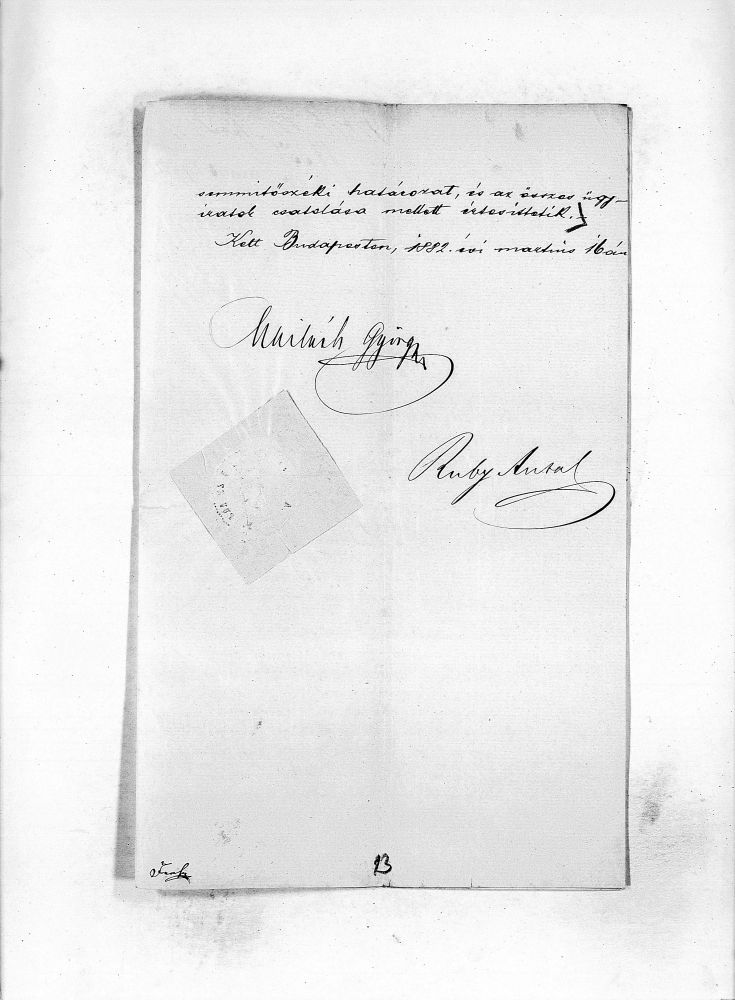 semmitőszéki határozat, és az összes ügy-
iratok csatolása mellett értesíttetik.
Kelt Budapesten, 1882. évi martius 16án
Mailáth György
Ruby Antal
13